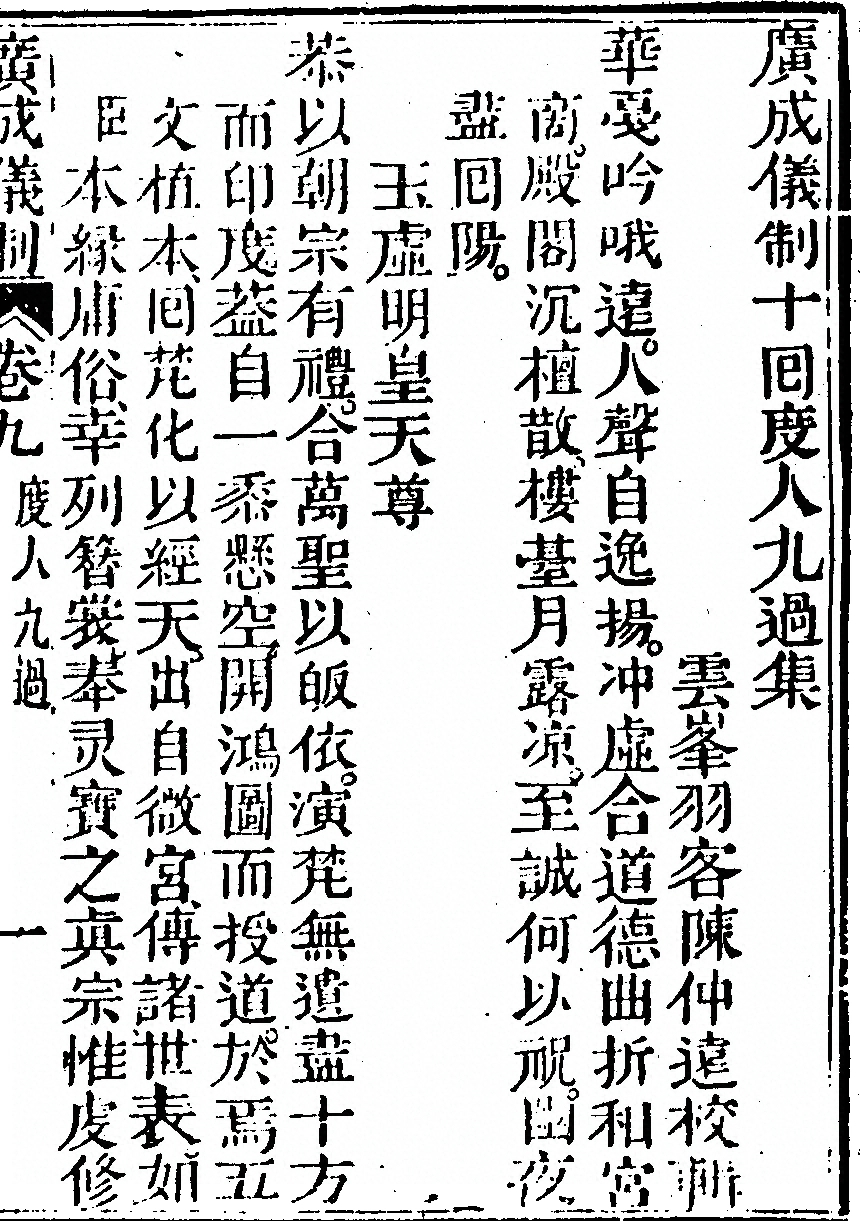 廣成儀制十回度人九過集
雲峯羽客陳仲遠校輯
華戞吟哦遠。人聲自逸揚。冲虛合道德曲折和宮
商。殿閣沉檀散、樓臺月露凉。至誠何以祝。幽夜
盡回陽。
玉虛明皇天尊
恭以朝宗有禮。合萬聖以皈依。演梵無遺盡十方
而印度葢自一黍懸空、開鴻圖而授道。於焉五
文植本、回梵化以經天、出自微宮、傳諸世表如
臣本緣庸俗、幸列簪裳奉灵寶之真宗惟虔修
廣成儀制 卷九 度人九過 一